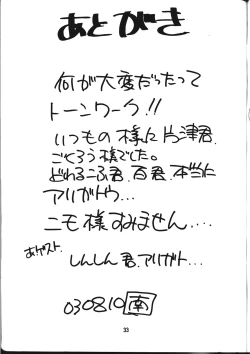 あとがき
何が大変だったって
トーンワーク!!
いつもの様に片津君.
ごくろう様でした。
どれるこふ君.百君.本当に
アリガトウ...
ニモ様すみません....
あゲスト.
しんしん君.アリガト...
030810 南
33